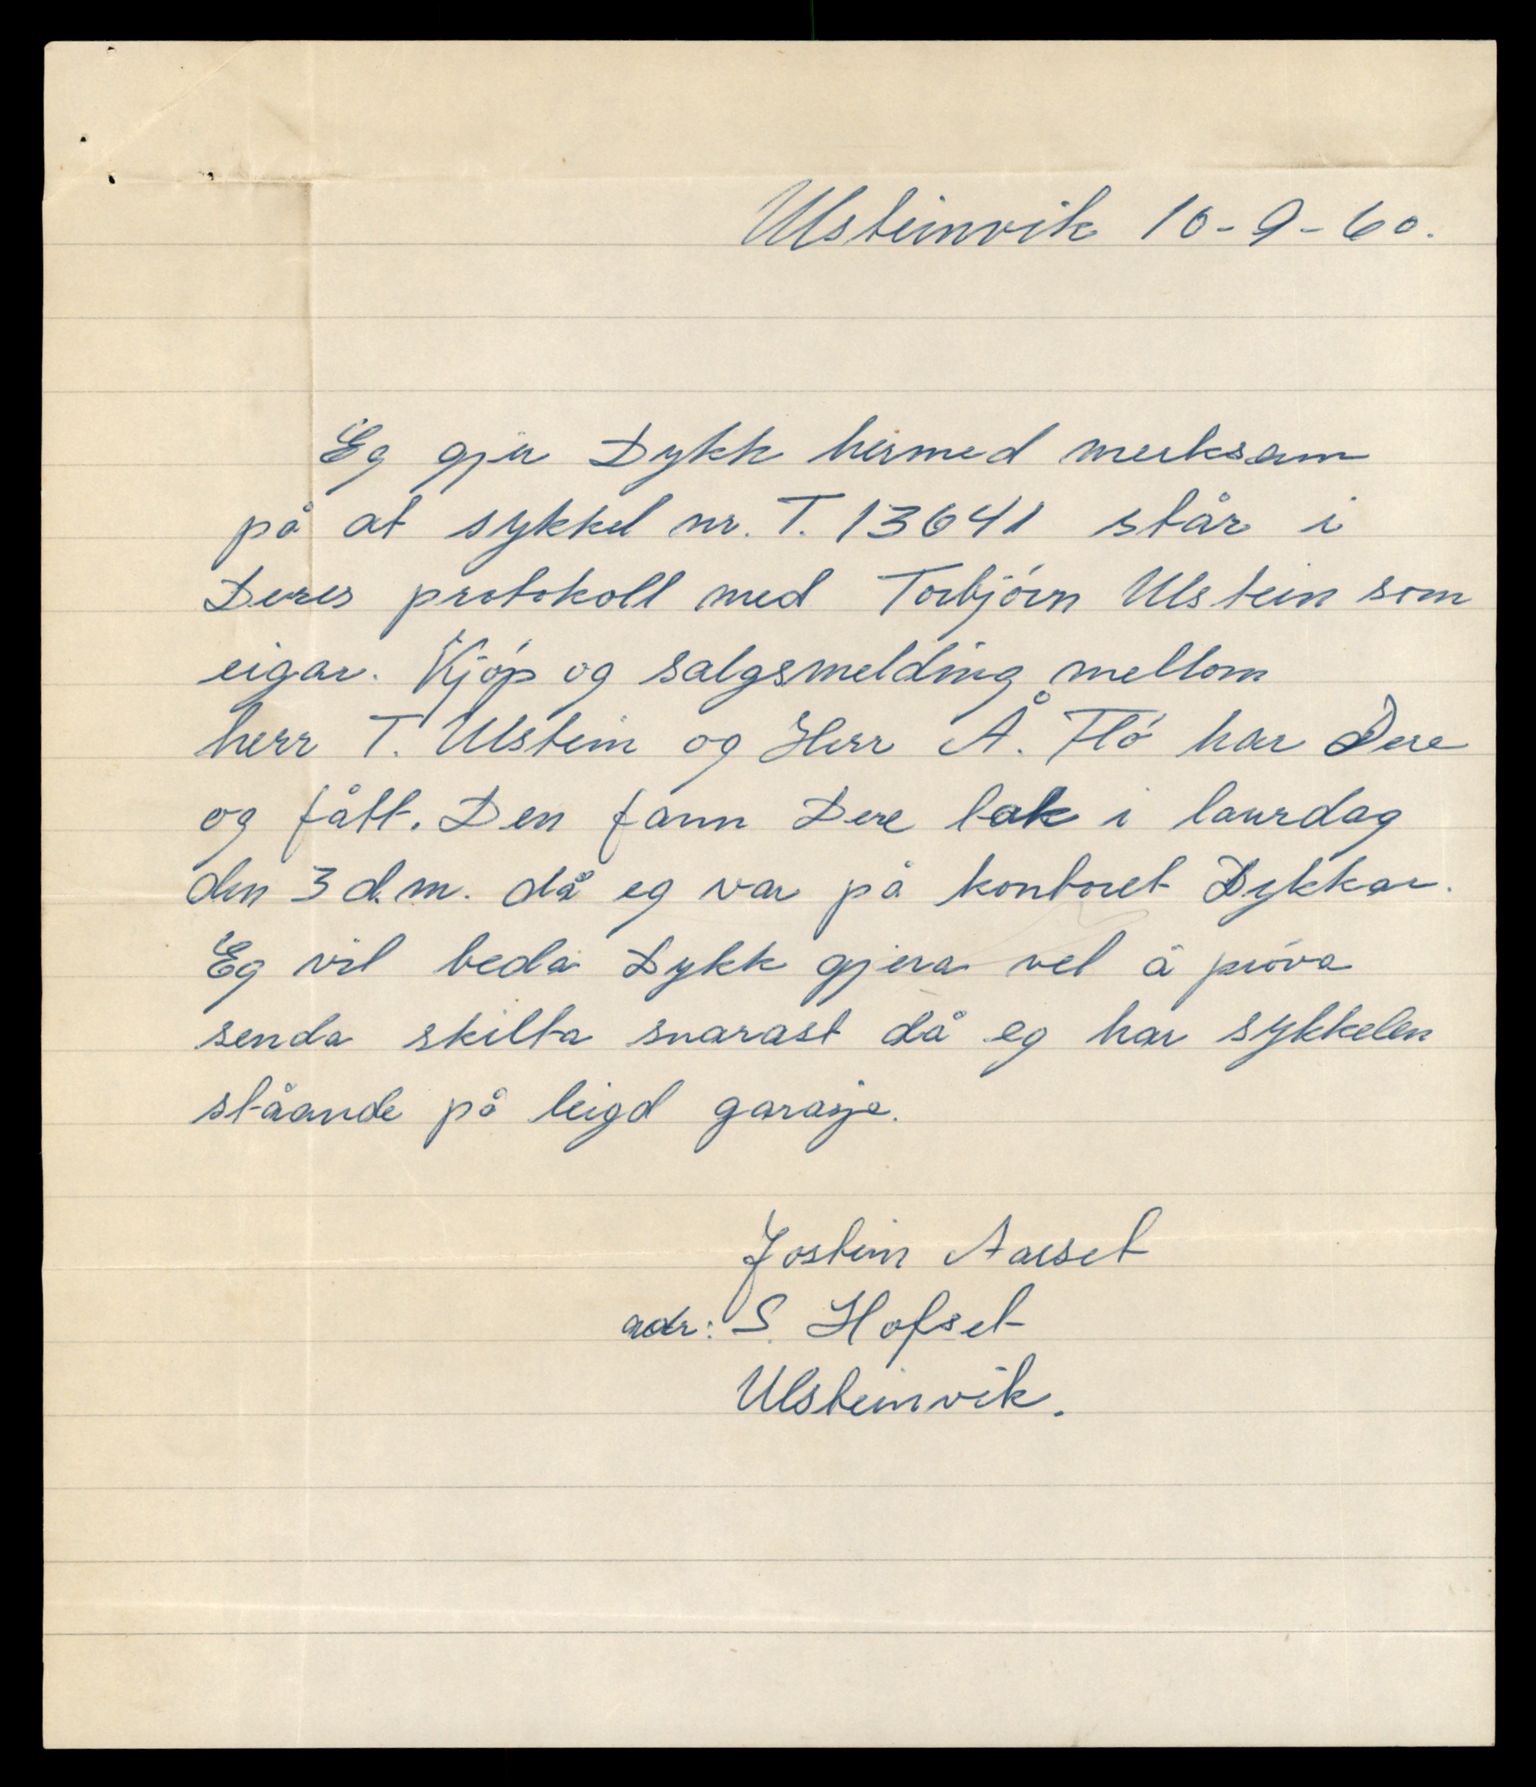 Ulsteinvik 10-9-60.
Eg gjer Dykk hermed merksam
på at sykkel nr. T. 13641 står i
Deres protokoll med Torbjórn Ulstein som
eigar. Kjóp og salgsmelding mellom
herr T. Ulstein og Herr Å. Fló har Dere
og fått. Den fann Dere tak i laurdag
den 3 d.m. då eg var på kontoret Dykkar.
Eg vil beda Dykk gjera vel å próva
senda skilta snarast då eg har sykkelen
ståande på leigd garasje.
Jostein Aarset
adr: S. Hofset
Ulsteinvik.